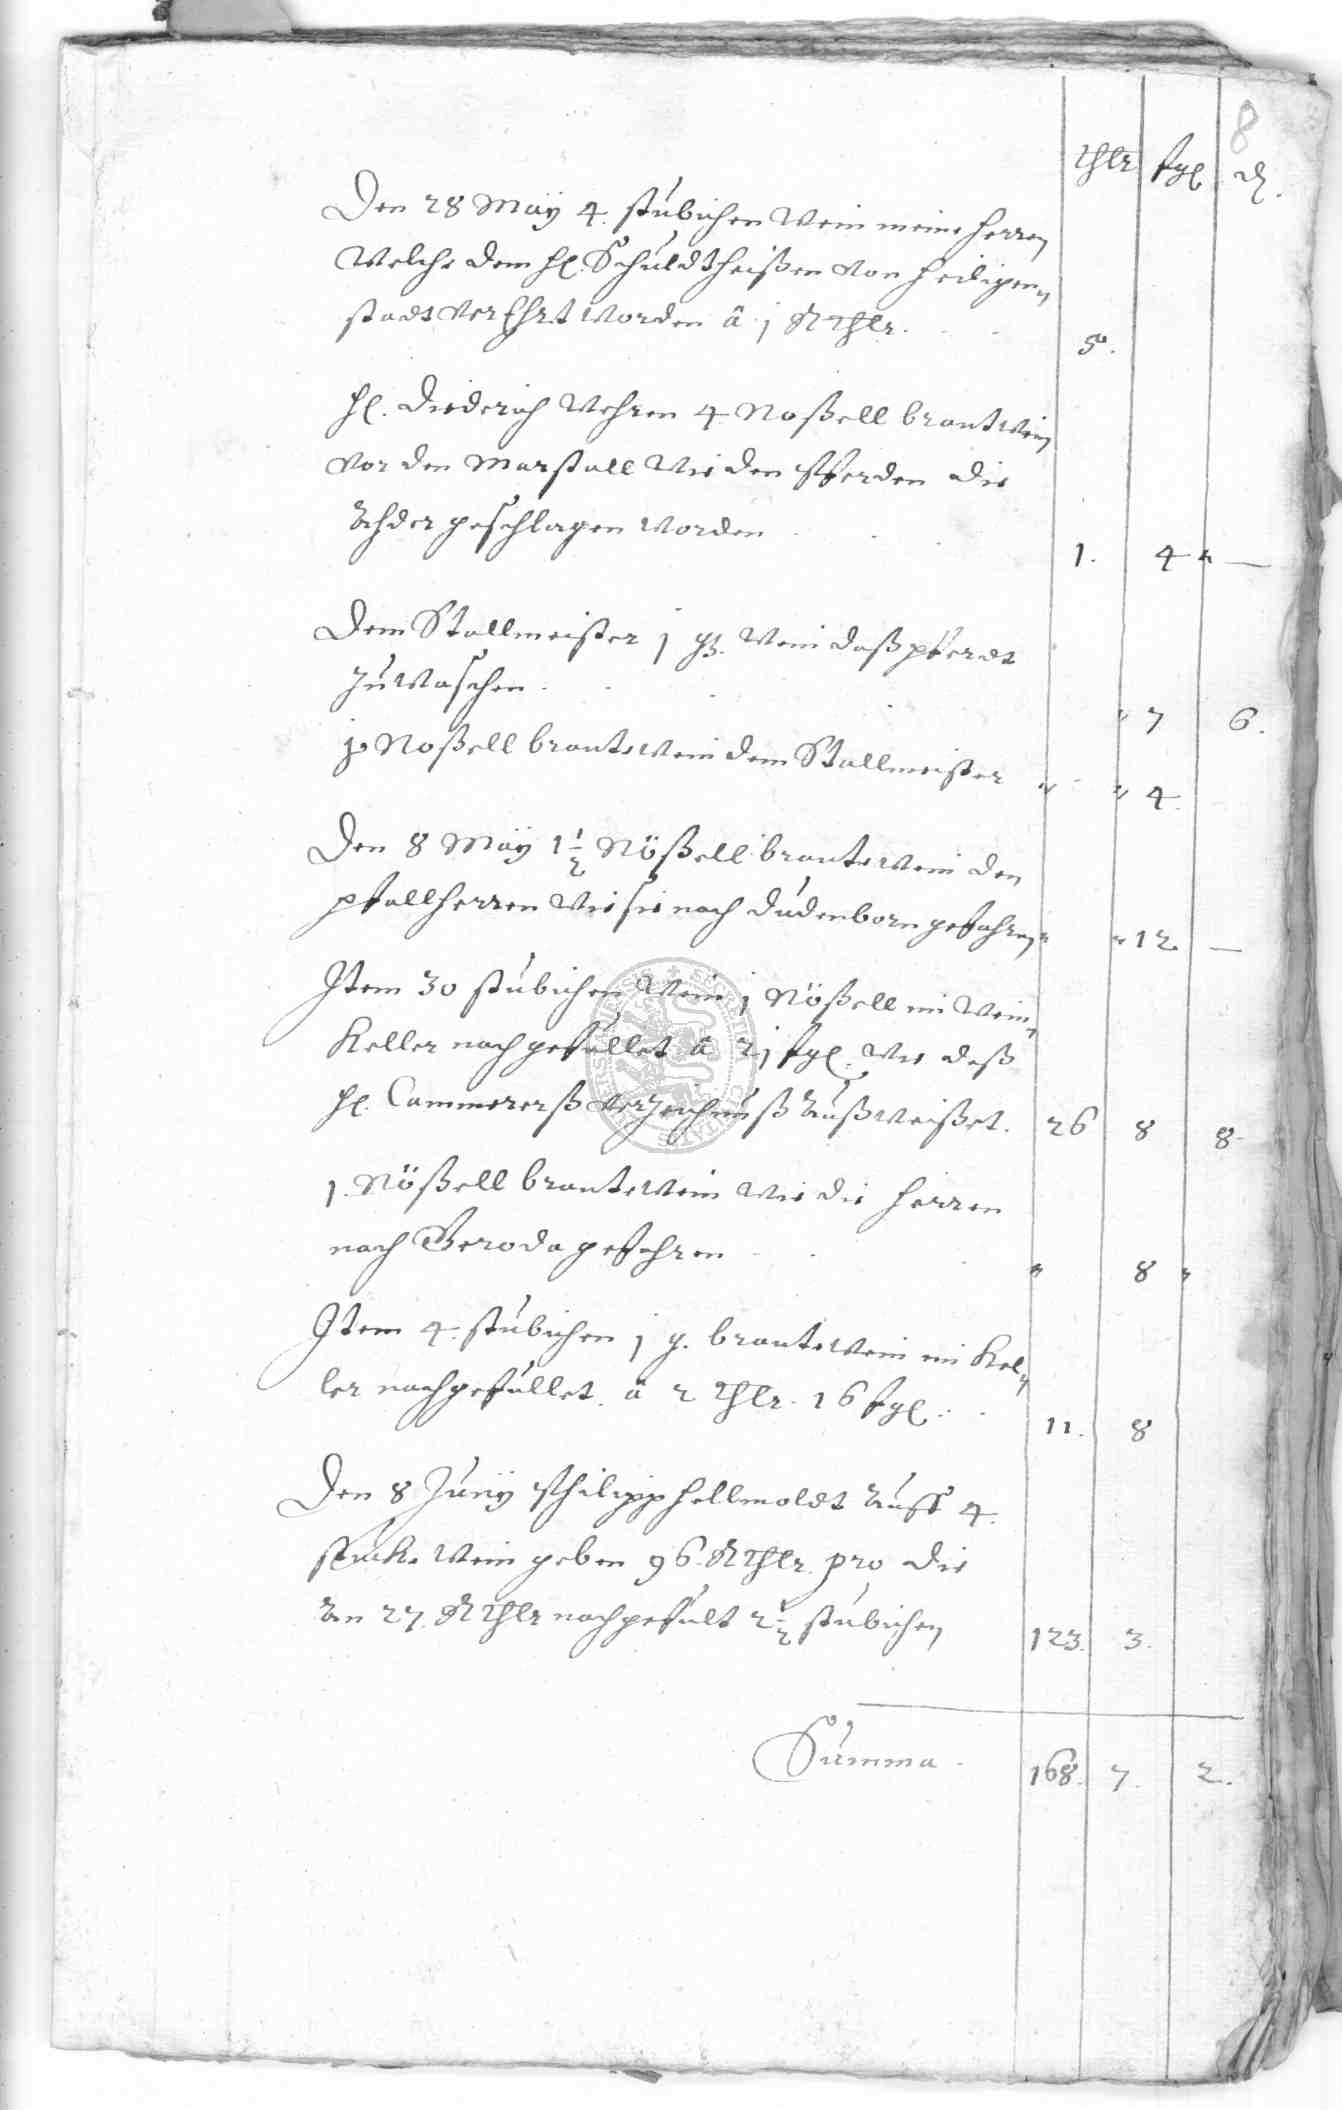 8
thlr fgl ₰.
Den 28 Maÿ 4. stübichen Wein meine herren
Welche dem hl. Schuldtheißen von heiligen
stadt verEhrt worden â j Rthlr. 5.
hl. Diederich Wehren 4 Noßell brantwein
vor den Marstall Wie den Pferden die
Ahder geschlagen worden . . 1. 4 " —
Dem Stallmeister j Wein daß pferdt
zu Waschen . . " 7 6.
j. Noßell brantewein dem Stallmeister " - " 4.
Den 8 Maÿ 1½ Nößell brantewein den
pfallherren Wie sie nach Dudenborn gefahren " " 12. —
Item 30 stübichen Wein j Nößell im Wein
Keller nach gefüllet â 2j fgl. Wie daß
hl. Cammererß Verzeichnüß außweißet. 26 8 8.
1. Nößell brantewein Wie die herren
nach Geroda gefahren . . " 8 "
Item 4. stübichen j q. brantewein im Kel
ler nachgefüllet. â 2 thlr. 16 fgl. . 11. 8
Den 8 Junÿ Philipp hellmoldt auff 4.
stucke Wein geben 96. Rthlr. pro die
an 27. Rthlr nachgefült 2½ stübichen 123. 3.
Summa . 168. 7. 2.